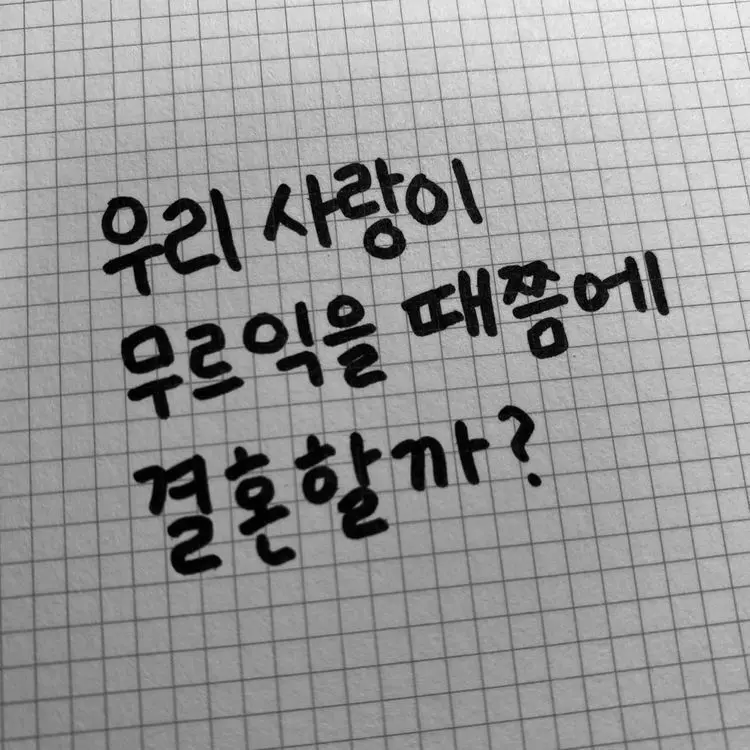 우리 사랑이
무르익을 때쯤에
결혼할까?